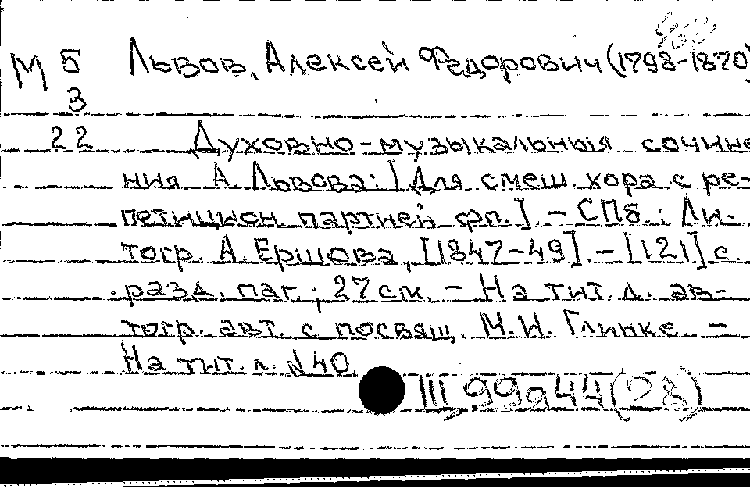 М Б Львов, Алексей Федорович (1798-1870)
3
22 Духовно-музыкальныя сочине
ния А. Львова: [Для смеш. хора с ре-
петицион. партией фп.]. - СПб.: Ли-
тогр. А. Ершова, [1847-49]. - [121] с
разд. паг.; 27 см. - На тит. л. ав-
тогр. авт. с посвящ. М.И. Глинке. -
На тит. л. №40.
III, 99а44(28)